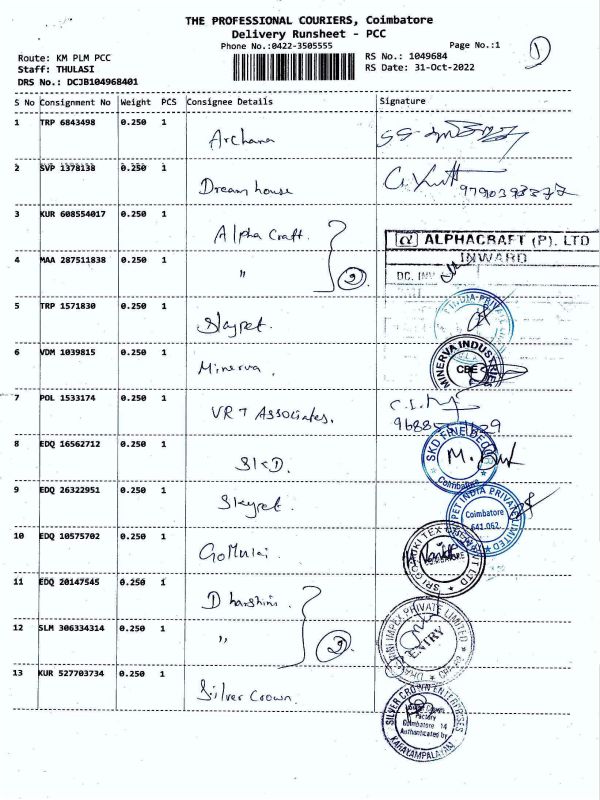 THE PROFESSIONAL COURIERS, Coimbatore
Delivery Runsheet - PCC
Phone No.:0422-3505555
Page No.:1
1
Route: KM PLM PCC
RS No.: 1049684
Staff: THULASI
RS Date: 31-Oct-2022
DRS No.: DCJB104968401
S No Consignment No Weight PCS Consignee Details Signature
1 TRP 6843498 0.250 1 Archana
2 SVP 1378138 0.250 1 Dream house
3 KUR 608554017 0.250 1 Alpha Craft.
ALPHACRAFT (P). LTD
INWARD
4 MAA 287511838 0.250 1 "
2
DC. INV
5 TRP 1571830 0.250 1 Skypet.
6 VDM 1039815 0.250 1 Minerva.
MINERVA INDUSTRIES
CBE
7 POL 1533174 0.250 1 VRT Associates.
8 EDQ 16562712 0.250 1 SKD.
SKD FINE DECO
Coimbatore
9 EDQ 26322951 0.250 1 Skypet.
PET INDIA PRIVATE LIMITED
Coimbatore
641.062.
10 EDQ 10575702 0.250 1 GoMulai
11 EDQ 20147545 0.250 1 Dharshini.
12 SLM 306334314 0.250 1 "
2
IMPEX PRIVATE LIMITED
ENTRY
13 KUR 527703734 0.250 1 Silver Crown.
SILVER CROWN ENTERPRISES
Factory
Coimbatore 14
Authenticated by
KARAYAMPALAYAM